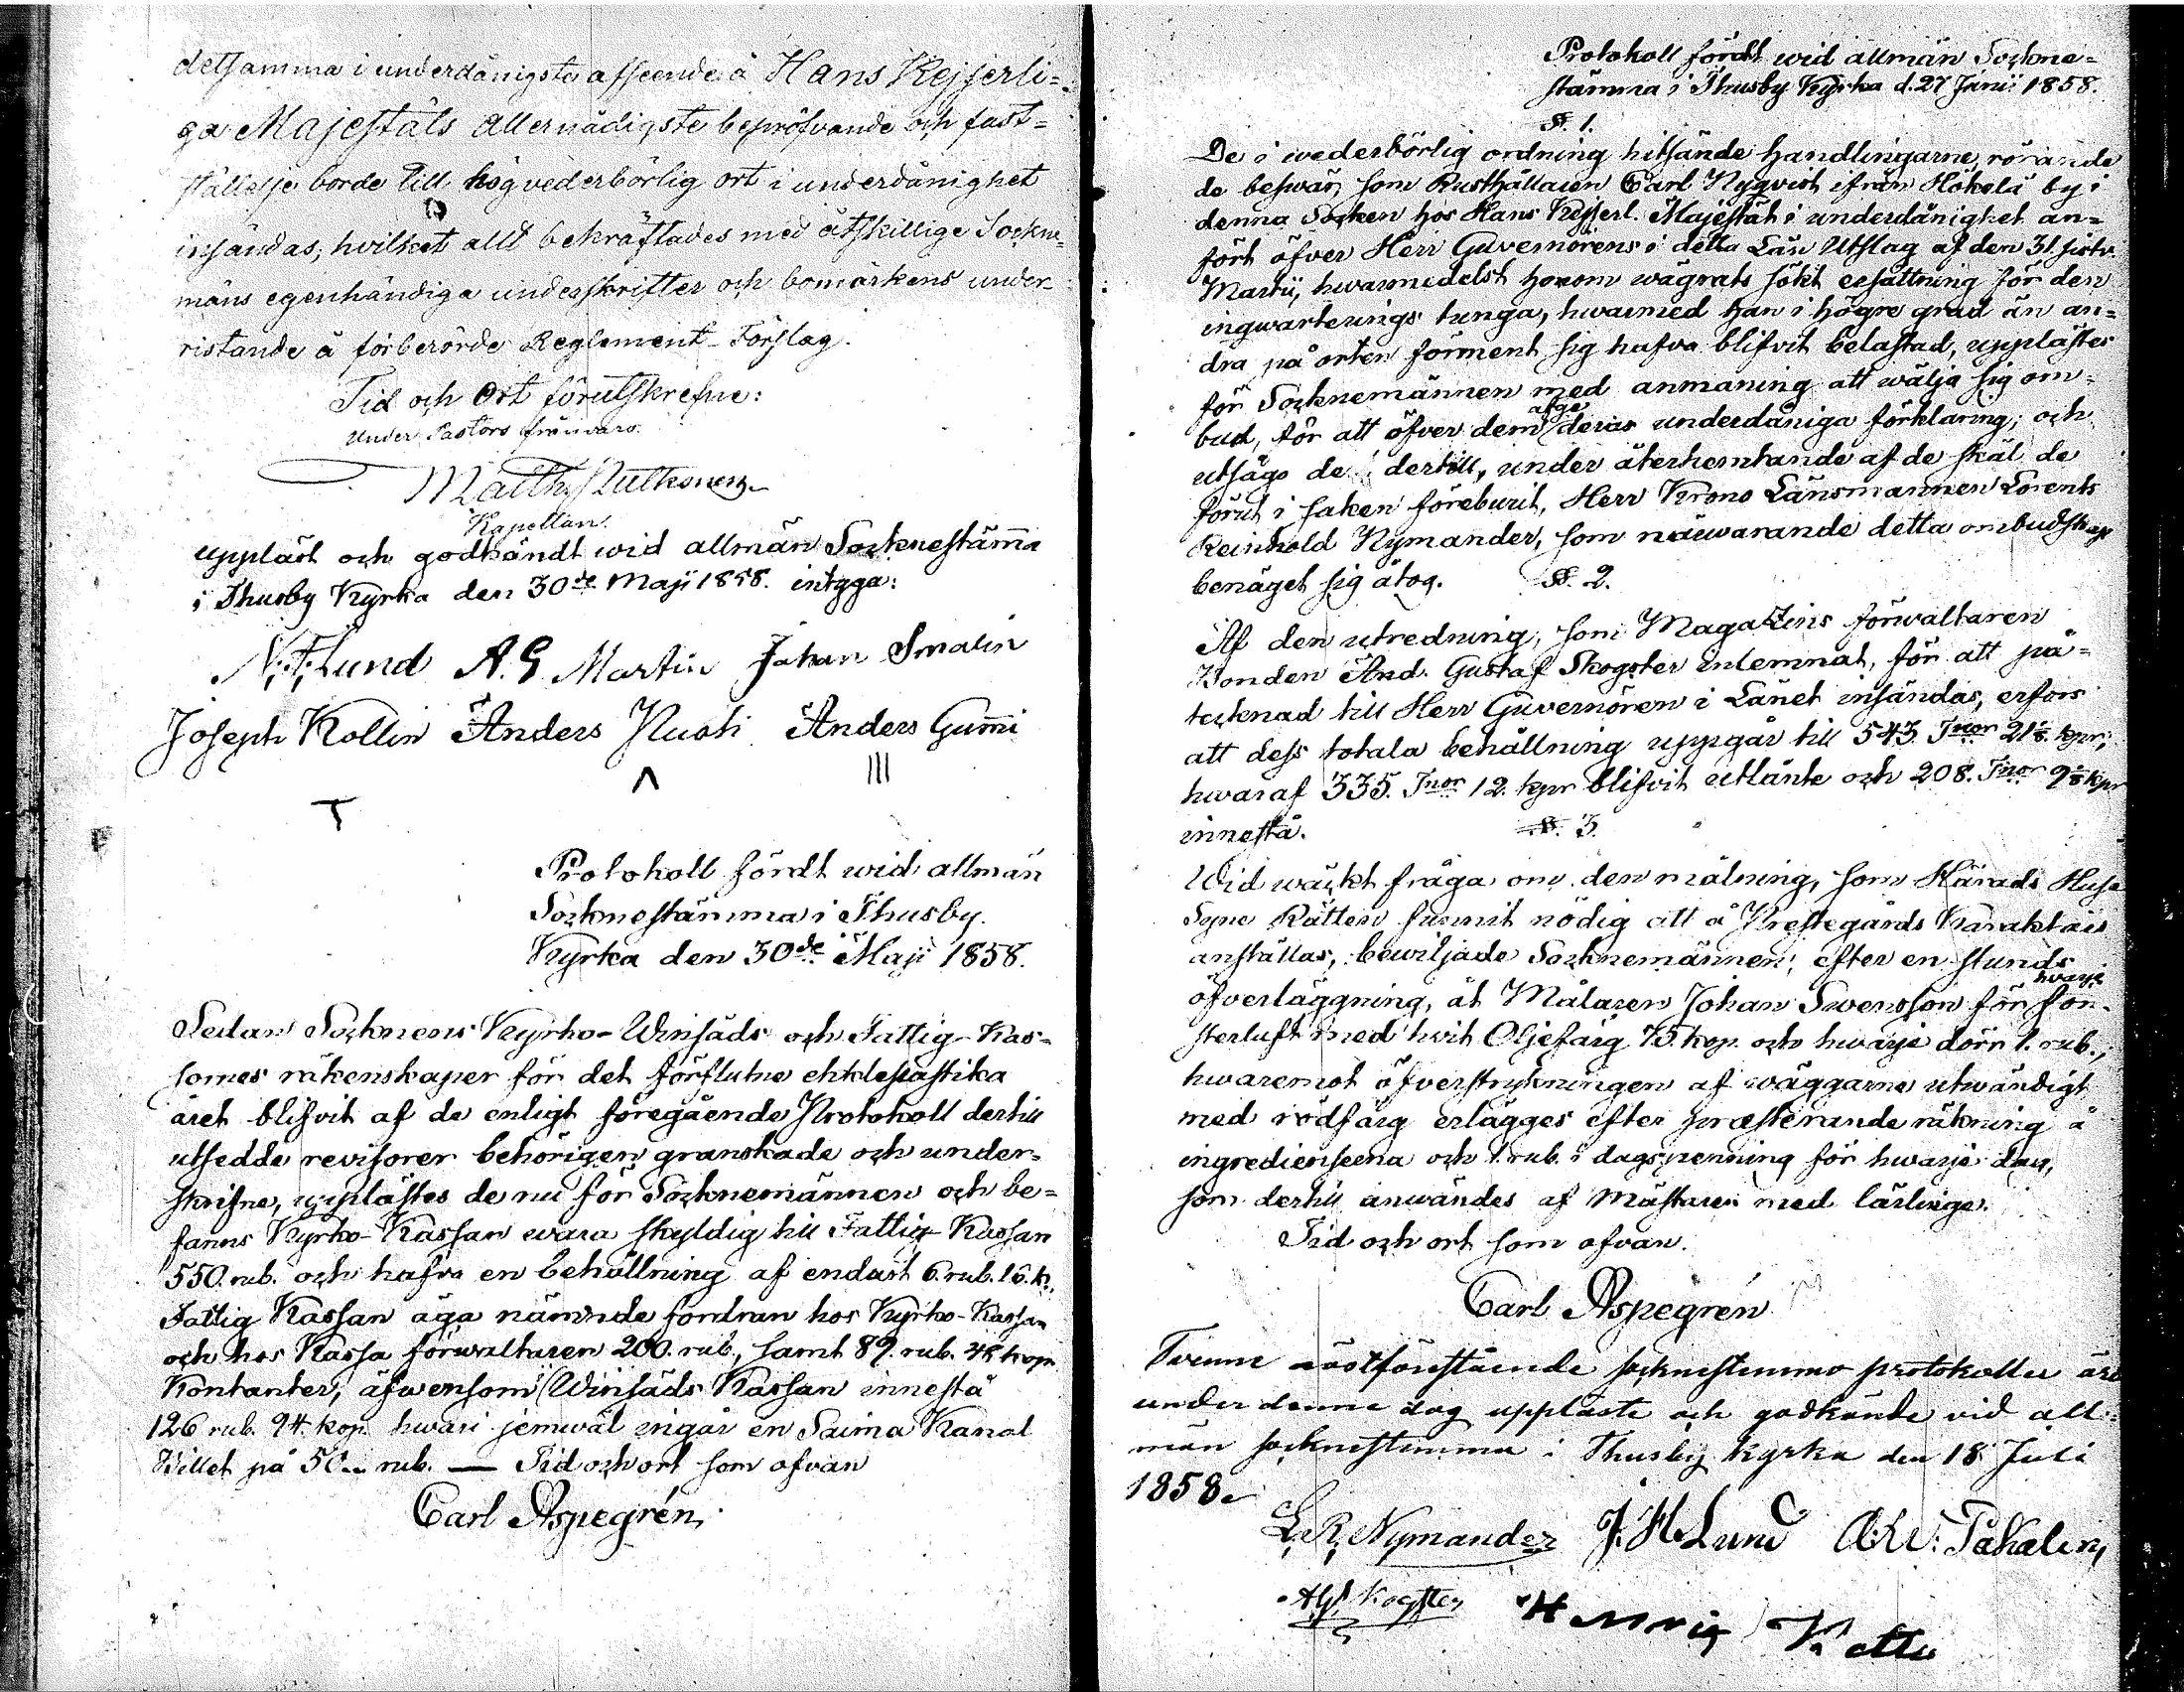 detsamma i underdånigste afseende å Hans Kejserli=
ga Majestäts Allernådigste bepröfvande och fast=
ställelse borde till högvederbörlig ort i underdånighet
insändas; hvilket allt bekräftades med åtskillige Sockne=
mäns egenhändiga underskrifter och bomärkens under=
ristande å förberörde Reglement-Förslag.
Tid och Ort förutskrefne:
Under Pastors frånvaro.
Matths Pulkonen
Kapellan.
uppläst och godkändt wid allmän Socknestämma
i Thusby Kyrka den 30de Maji 1858. intyga:
N. F. Lund A. G Martin Johan Smalin
Joseph Kollin Anders Ruoti Anders Gummi
Protokoll fördt wid allmän
Socknestämma i Thusby
Kyrka den 30de Maji 1858.
Sedan Socknens Kyrko-Winsäds och Fattig-Kas=
sornes räkenskaper för det förflutne ecklesiastika
året blifvit af de enligt föregående Protokoll dertill
utsedde revisorer behörigen granskade och under=
skrifne, upplästes de nu för Socknemännen och be=
fanns Kyrko-Kassan wara skyldig till Fattig-Kassan
550. rub. och hafva en behållning af endast 6. rub. 16. k.,
Fattig Kassan äga nämnde fordran hos Kyrko-Kassan
och hos Kassa förwaltaren 200. rub., samt 89. rub. 48 kop.
Kontanter, äfwensom Winsäds Kassan innestå
126 rub. 94. kop. hwari jemwäl ingår en Saima Kanal
Billet på 50 rub. — Tid och ort som ofvan
Carl Aspegrén.
Protokoll fördt wid allmän Sockne=
stämma i Thusby Kyrka d. 27 Junii 1858.
§. 1.
De i wederbörlig ordning hitsände handlingarne, rörande
de beswär, som Rusthållaren Carl Nyqvist ifrån Hökelä by i
denna Socken hos Hans Kejserl. Majestät i underdånighet an=
fört öfver Herr Guvernörens i detta Län Utslag af den 31. sistv.
Martii, hwarmedelst honom wägrats sökt ersättning för den
inqwarterings tunga, hwarmed han i högre grad än an=
dra på orten förment sig hafva blifvit belastad, upplästes
för Socknemännen med anmaning att wälja sig om=
bud, för att öfver dem afge deras underdåniga förklaring; och
utsågo de dertill, under återhemtande af de skäl de
förut i saken föreburit, Herr Krono Länsmannen Lorents
Reinhold Nymander, som närwarande detta ombudskap
benäget sig åtog. §. 2.
Af den utredning, som Magazins förwaltaren
Bonden And. Gustaf Skogster inlemnat, för att på=
tecknad till Herr Guvernören i Länet insändas, erfors
att dess totala behållning uppgår till 543. Tnor 21⅛. kpr;
hwaraf 335. Tnor 12. kpr blifvit utlånte och 208. Tnor 9⅛ kpr
innestå. §. 3.
Wid wäckt fråga om den målning, som Härads Husa
Syne Rätten funnit nödig att å Prestegårds Karaktäis
anställas, bewiljade Socknemännen, efter en stunds
öfverläggning, åt Målaren Johan Swensson för hvarje fön=
sterluft med hvit Oljefärg 75. kop. och hwarje dörr 1. rub.,
hwaremot öfverstrykningen af wäggarne utwändigt
med rödfärg erlägges efter præsterande räkning å
ingredienserna och 1. rub. i dagspenning för hwarje dag,
som dertill anwändes af Mästaren med lärlinge.
Tid och ort som ofvan.
Carl Aspegrén
Tvenne nästförestående sockenstemmo protokoller äro
under denne dag uppläste och godkände vid all=
män sockenstemma i Thusby kyrka den 18 Juli
1858.
L. R. Nymander J. H. Lund
Henric